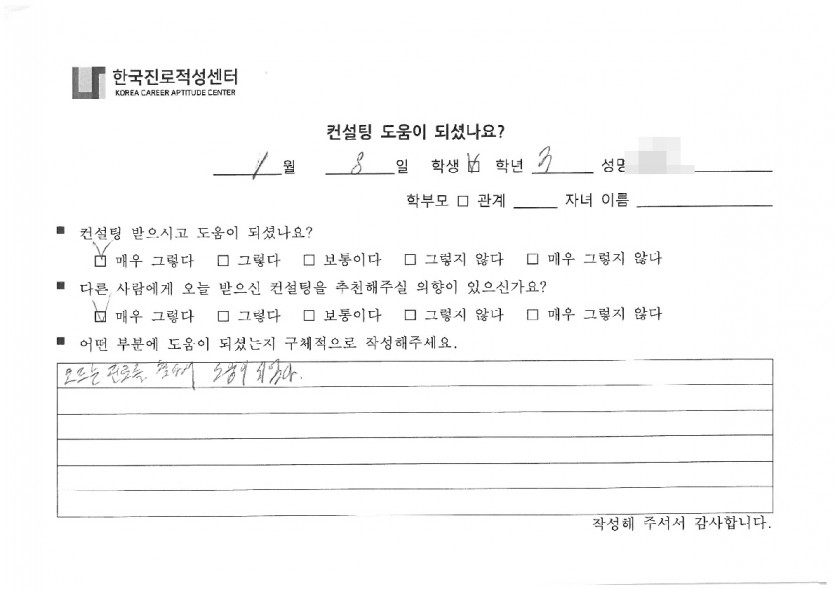 한국진로적성센터
KOREA CAREER APTITUDE CENTER
컨설팅 도움이 되셨나요?
1 월 8 일 학생 ☑ 학년 3 성명
학부모 □ 관계 자녀 이름
■ 컨설팅 받으시고 도움이 되셨나요?
☑ 매우 그렇다 □ 그렇다 □ 보통이다 □ 그렇지 않다 □ 매우 그렇지 않다
■ 다른 사람에게 오늘 받으신 컨설팅을 추천해주실 의향이 있으신가요?
☑ 매우 그렇다 □ 그렇다 □ 보통이다 □ 그렇지 않다 □ 매우 그렇지 않다
■ 어떤 부분에 도움이 되셨는지 구체적으로 작성해주세요.
모르는 진로를 도움이 되었다.
작성해 주셔서 감사합니다.